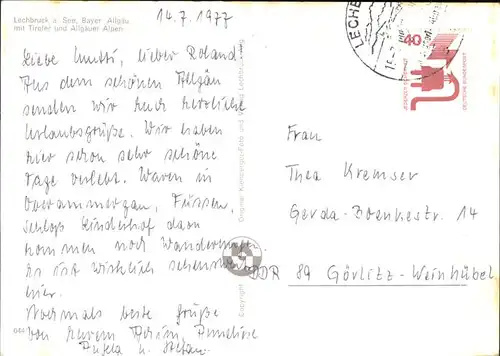 Lechbruck a. See, Bayer. Allgäu
mit Tiroler und Allgäuer Alpen
14.7.1977
Liebe Mutti, lieber Roland!
Aus dem schönen Allgäu
senden wir Euch herzliche
Urlaubsgrüße. Wir haben
hier schon sehr schöne
Tage verlebt. Waren in
Oberammergau, Füssen,
Schloß Linderhof dazu
kommen noch Wanderungen.
Es ist wirklich sehenswert
hier.
Nochmals beste Grüße
von Eurem Achim, Anneliese
u. Stefan.
Copyright
Original
LECHB
40
JEDERZEIT SICHERHEIT
DEUTSCHE BUNDESPOST
Frau
Thea Kremser
Gerda-Boenkestr. 14
DDR 89 Görlitz-Weinhübel